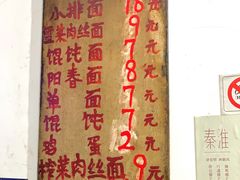 小排面 18元
肉丝面 9元
馄饨面 7元
阳春面 8元
单面 7元
馄饨 7元
鸡蛋 2元
榨菜肉丝面 9元
秦淮